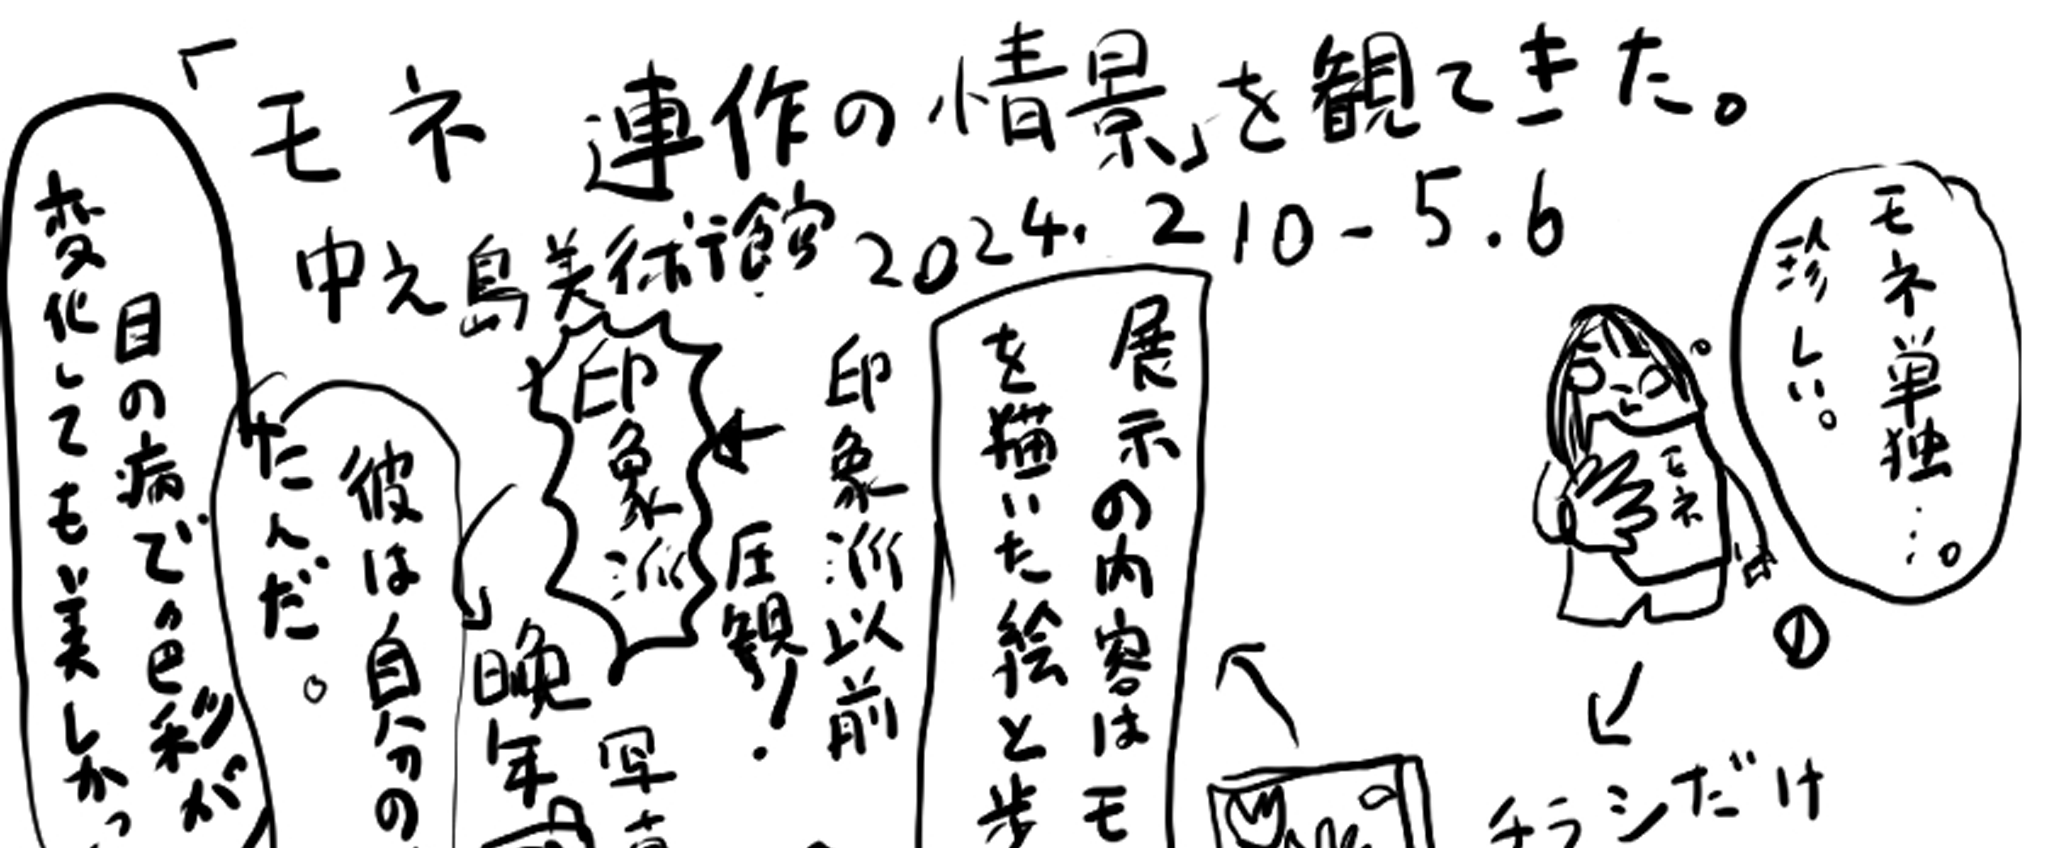 「モネ 連作の情景」を観てきた。
中之島美術館 2024. 2 10 - 5.6
モネ単独…。
珍しい。
モネ
①
チラシだけ
展示の内容はモ
を描いた絵と歩
印象派以前
圧観!
印象派
写真
晩年
彼は自分の
たんだ。
目の病で色彩が
変化しても美しかっ